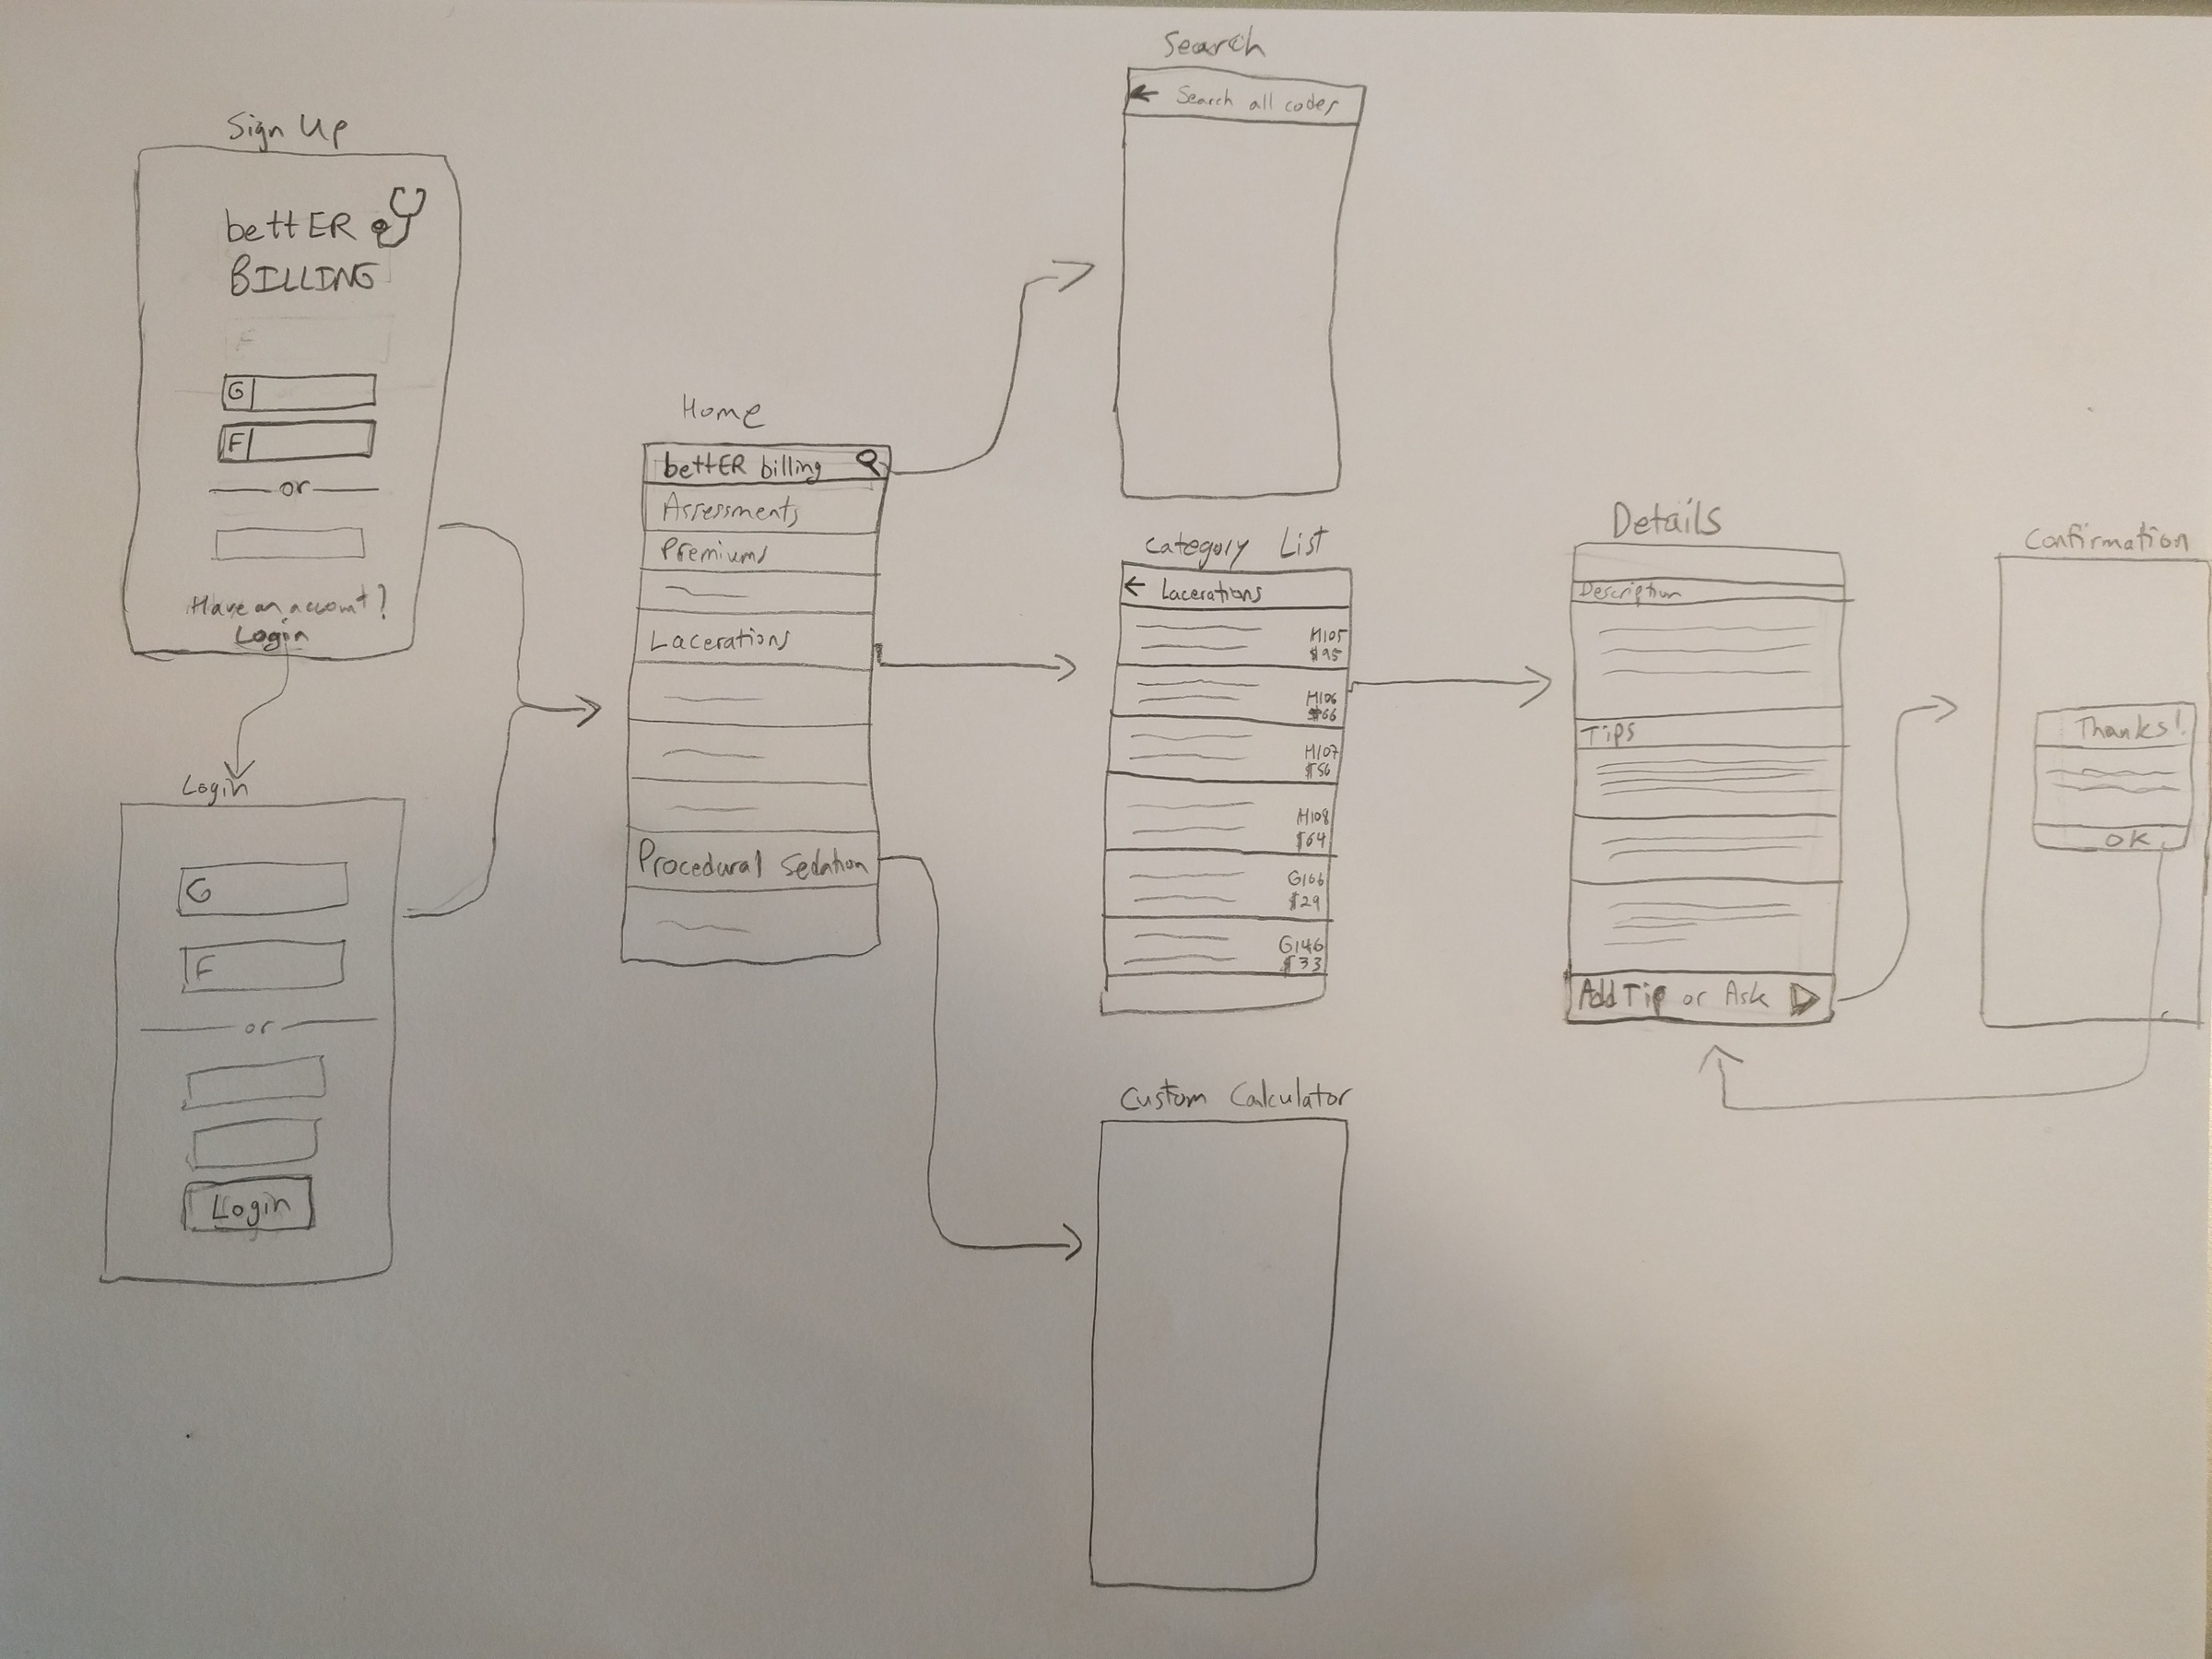 Sign Up
bettER
BILLING
F
G
F
or
Have an account?
Login
Login
G
F
or
Login
Home
bettER billing
Assessments
Premiums
Lacerations
Procedural Sedation
Search
Search all codes
Category List
Lacerations
H105
$95
H106
$66
H107
$56
H108
$64
G166
$29
G146
$33
Custom Calculator
Details
Description
Tips
Add Tip or Ask
Confirmation
Thanks!
OK